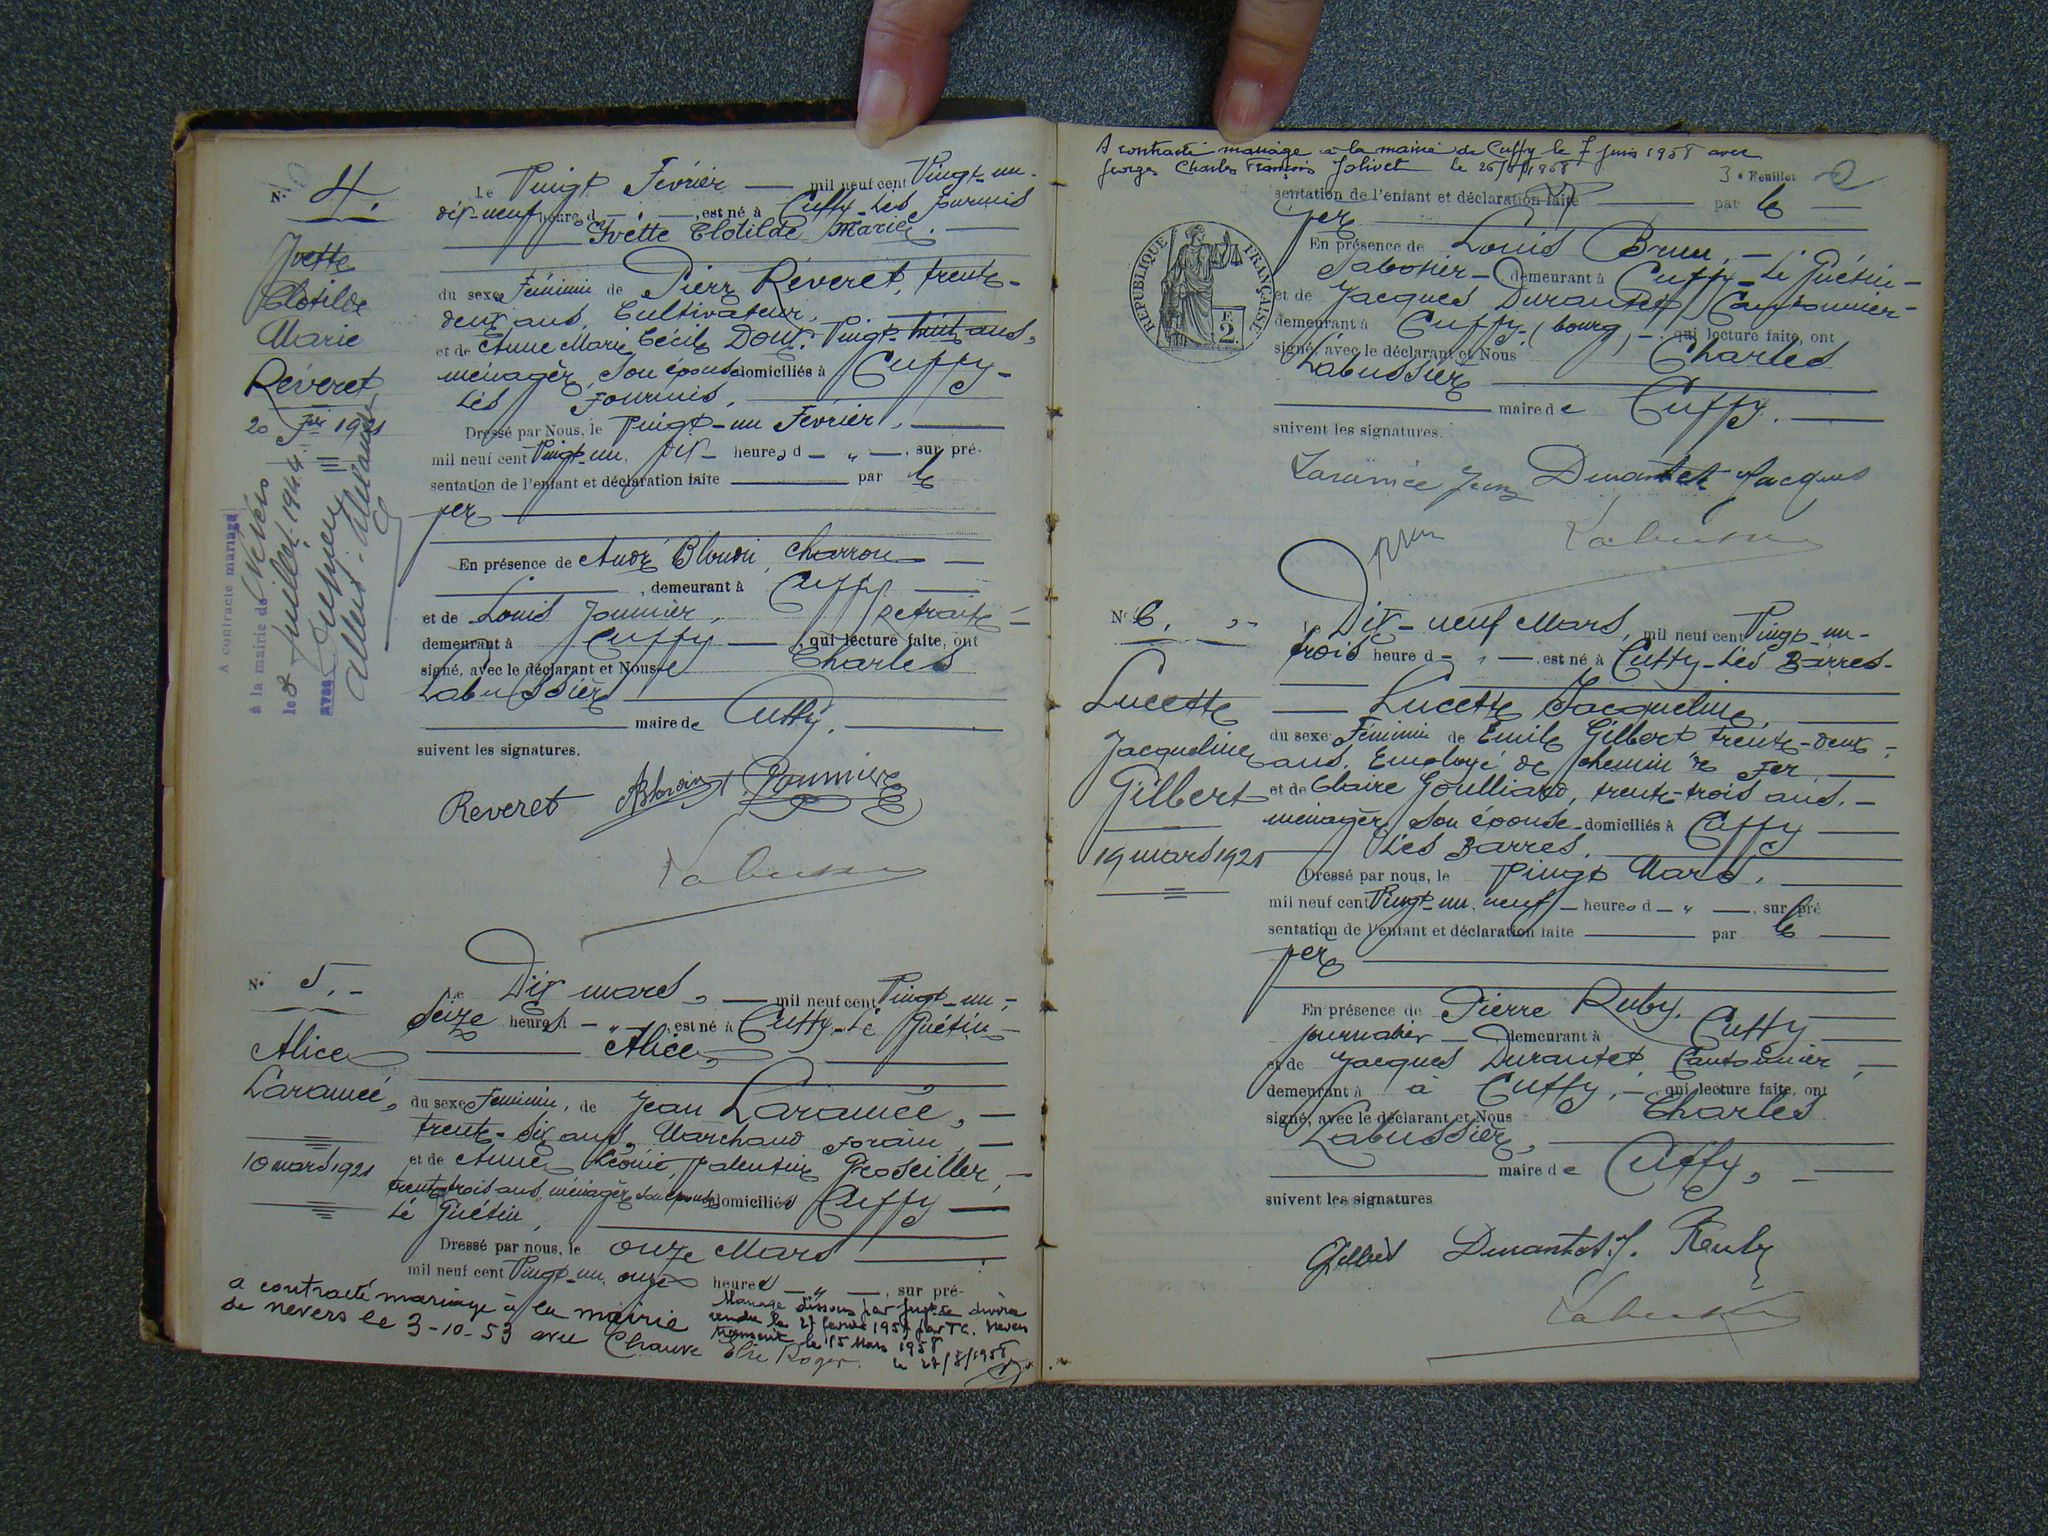 N° 4.
Yvette
Clotilde
Marie
Réveret
20 fer 1921
A contracté mariage
à la mairie de Nevers
le 8 Juillet 1944
avec
Le Vingt Février — mil neuf cent Vingt-un-
dix-neuf heures d — , est né à Cuffy-Les Fourmis
Yvette Clotilde Marie.
du sexe Féminin de Pierre Réveret, trente-
deux ans, Cultivateur,
et de Anne Marie Cécile Doux, Vingt-huit ans,
ménagère, son épouse domiciliés à Cuffy-
Les Fourmis,
Dressé par Nous, le Vingt-un Février,
mil neuf cent Vingt-un, dix- heures d — " — , sur pré-
sentation de l'enfant et déclaration faite — par le
père
En présence de André Blondin, charron —
, demeurant à Cuffy
et de Louis Jommier, retraité -
demeurant à Cuffy — , qui lecture faite, ont
signé, avec le déclarant et Nous Charles
Labussière
maire de Cuffy.
suivent les signatures.
Reveret Blondin
N° 5.-
Alice
Laramée,
10 mars 1921
Le Dix mars, — mil neuf cent Vingt-un,-
Seize heures d — " — , est né à Cuffy-Le Guétin-
Alice,
du sexe Féminin, de Jean Laramée, —
trente-six ans, Marchand forain, —
et de Anne, Léonie, Valentine Groseiller, —
trente-trois ans, ménagère son épouse domiciliés Cuffy —
Le Guétin,
Dressé par nous, le onze Mars
mil neuf cent Vingt-un, onze heures — " — , sur pré-
a contracté mariage à la mairie
de nevers le 3-10-53 avec Chauve Elie Roger.
Mariage dissous par jugt de divorce
rendu le 27 février 1957 par T.C. Nevers
transcrit le 15 Mars 1958
le 27/5/1958
A contracté mariage à la mairie de Cuffy le 7 juin 1958 avec
Georges Charles François Jolivet le
3e Feuillet
sentation de l'enfant et déclaration faite — par le
père
REPUBLIQUE FRANÇAISE
2F
En présence de Louis Brun, —
Sabotier — demeurant à Cuffy-Le Guétin-
et de Jacques Durantet, Cantonnier-
demeurant à Cuffy-(bourg)- qui lecture faite, ont
signé, avec le déclarant et Nous Charles
Labussière
maire de Cuffy.
suivent les signatures.
Laramée Jean Durantet Jacques
Brun
N° 6.
Lucette
Jacqueline
Gilbert
19 mars 1921
Le Dix-neuf Mars, mil neuf cent Vingt-un-
trois heure d — " — , est né à Cuffy-Les Barres-
Lucette Jacqueline,
du sexe Féminin de Emile Gilbert trente-deux-
ans, Employé de chemin de Fer,
et de Claire Goulliard, trente-trois ans, —
ménagère, son épouse domiciliés à Cuffy
Les Barres.
Dressé par nous, le Vingt Mars,
mil neuf cent Vingt-un, neuf — heures d — " — , sur pré
sentation de l'enfant et déclaration faite — par le
père
En présence de Pierre Ruby,
journalier — demeurant à Cuffy
et de Jacques Durantet, Cantonnier, —
demeurant à à Cuffy, — qui lecture faite, ont
signé, avec le déclarant et Nous Charles
Labussière,
maire de Cuffy,
suivent les signatures
Gilbert Durantet J. Ruby